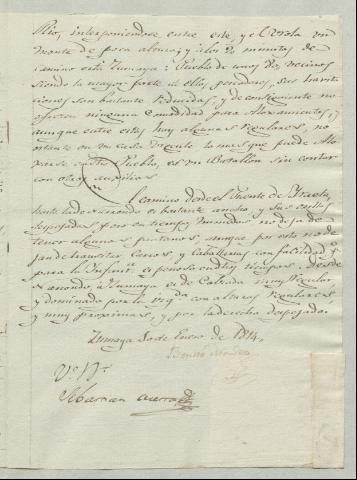 Rio, interponiendose entre este, y el Urola un
monte de poca altura; y a los 20 minutos de
camino está Zumaya: Pueblo de unos 80 vecinos
siendo la mayor parte de ellos pescadores, sus havita
ciones son bastante reducidas, y de consiguiente no
ofrecen ninguna comodidad para Aloxamientos, y
aunque entre estas hay algunas regulares, no
ostante en un caso lo mas que puede Alo
xarse en este Pueblo, es un Batallon sin contar
con otros auxilios.
El camino desde el Puente de Yraeta,
hasta la de es bastante ancho y sus orillas
despejadas, pero en tiempos humedos no deja de
tener algunos pantanos, aunque por esto no de
jan de transitar Carros, y Caballerias con facilidad, y
para la Infant.a es penoso en dhos tiempos. Desde
a Zumaya es de Calzada muy regular
y dominado por la izq.da con alturas regulares
y muy proximas, y por la derecha despejado.
Zumaya 30 de Enero de 1814.
Benito
V.o B.o